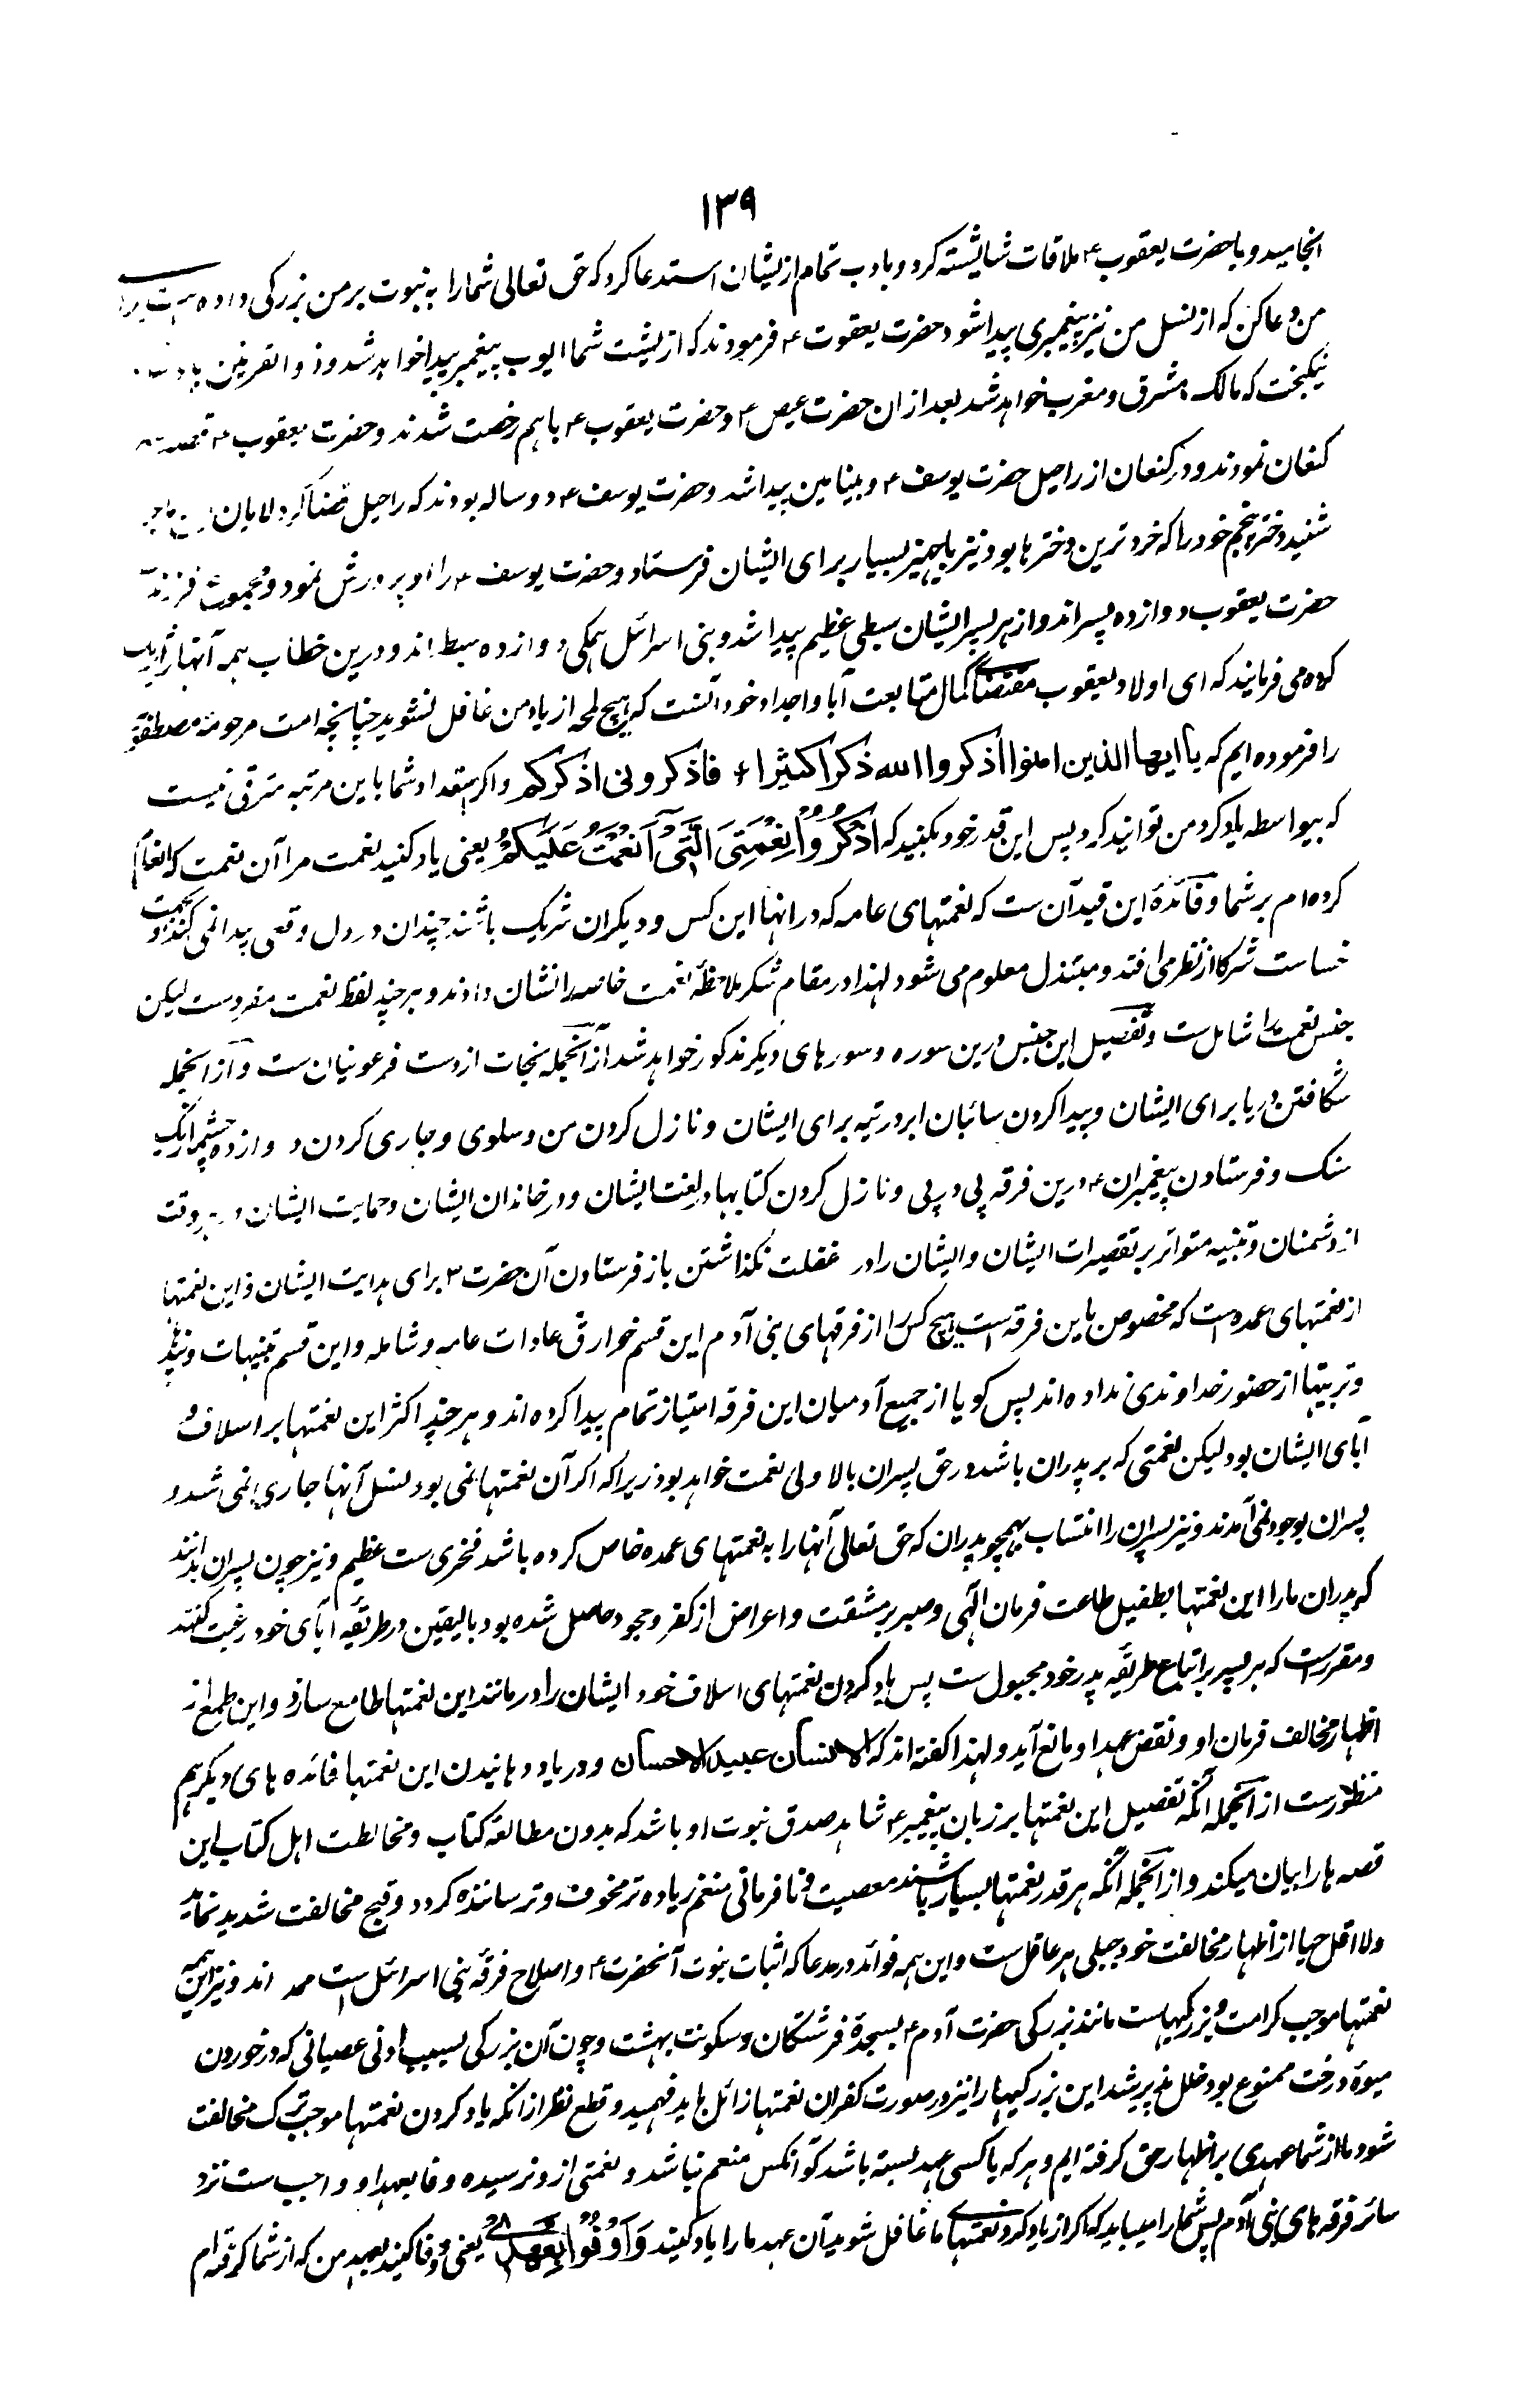 ۱۳۹
انجامید و با حضرت یعقوب ؑ ملاقات شائسته کرد و بادب تمام از یشان استدعا کرد که حق تعالی شما را به نبوت بر من بزرکی داده است
من دعا کن که از نسل من نیز پیغمبری پیدا شود حضرت یعقوت ؑ فرمودند که از پشت شما ایوب پیغمبر پیدا خواهد شد و ذو القرنین
نیکبخت که مالک مشرق و مغرب خواهد شد بعد ازان حضرت عیص ؑ و حضرت یعقوب ؑ باهم رخصت شدند و حضرت یعقوب ؑ قصد
کنعان نمودند و در کنعان از راحیل حضرت یوسف ؑ و بنیامین پیدا شد و حضرت یوسف ؑ دو ساله بودند که راحیل قضا کرد لابان این ماجرا
شنید دختر پنجم خود را که خرد ترین دخترها بود نیز با جهیز بسیار برای ایشان فرستاد و حضرت یوسف ؑ را او پرورش نمود و مجموع فرزندان
حضرت یعقوب دوازده پسر اند و از هر پسر ایشان سبطی عظیم پیدا شد و بنی اسرائل همکی دوازده سبط اند و درین خطاب همه آنها را یک
کاه می فرمایند که ای اولاد یعقوب مقتضای کمال متابعت آبا و اجداد خود آنست که هیچ لمحه از یاد من غافل نشوید چنانچه امت مرحومه مصطفویه
را فرموده ایم که یا ایها الذین امنوا اذکروا الله ذکرا کثیرا + فاذکرونی اذکرکم و اکر استعداد شما باین مرتبه مترقی نیست
که بیواسطه یاد کرد من توانید کرد پس این قدر خود بکنید که اُذْکُرُوْا نِعْمَتِیَ الَّتِیْٓ اَنْعَمْتُ عَلَیْکُمْ یعنی یاد کنید نعمت مرا آن نعمت که انعام
کرده ام بر شما و فائدهٔ این قید آن ست که نعمتهای عامه که درانها این کس و دیکران شریک باشند چندان در دل وقعی پیدا نمی کند و بجهت
خساست شرکا از نظر می افتد و مبتذل معلوم می شود لهذا در مقام شکر ملاحظهٔ نعمت خاصه را نشان دادند و هر چند لفظ نعمت مفردست لیکن
جنس نعمت را شامل ست و تفصیل این جنس درین سوره و سورهای دیکر مذکور خواهد شد از آنجمله نجات از دست فرعونیان ست و از انجمله
شکافتن دریا برای ایشان و پیدا کردن سائبان ابر در تیه برای ایشان و نازل کردن من و سلوی و جاری کردن دوازده چشمه از یک
سنک و فرستادن پیغمبران ؑ درین فرقه پی در پی و نازل کردن کتابها در لغت ایشان و در خاندان ایشان و حمایت ایشان در هر وقت
از دشمنان و تنبیه متواتر بر تقصیرات ایشان و ایشان را در غفلت نکذاشتن باز فرستادن آن حضرت ؐ برای هدایت ایشان و این نعمتها
از نعمتهای عمده است که مخصوص باین فرقه است هیچ کس را از فرقهای بنی آدم این قسم خوارق عادات عامه و شامله و این قسم تنبیهات
و تربیتها از حضور خداوندی نداده اند پس کویا از جمیع آدمیان این فرقه امتیاز تمام پیدا کرده اند و هر چند اکثر این نعمتها بر اسلاف و
آبای ایشان بود لیکن نعمتی که بر پدران باشد در حق پسران بالاولی نعمت خواهد بود زیرا که اکر آن نعمتها نمی بود نسل آنها جاری نمی شد و
پسران بوجود نمی آمدند و نیز پسران را انتساب بهمچو پدران که حق تعالی آنها را به نعمتهای عمده خاص کرده باشد فخری ست عظیم و نیز چون پسران بدانند
که پدران ما را این نعمتها بطفیل طاعت فرمان الهی و صبر بر مشقت و اعراض از کفر و جحود حاصل شده بود بالیقین در طریقهٔ آبای خود رغبت کنند
و مقررست که هر پسر بر اتباع طریقهٔ پدر خود مجبول ست پس یاد کردن نعمتهای اسلاف خود ایشان را در مانند این نعمتها طامع سازد و این طمع از
اظهار مخالف فرمان او و نقض عهد او مانع آید و لهذا کفته اند که الانسان عبید الاحسان و در یاد دهانیدن این نعمتها فائده های دیکر هم
منظورست از انجمله آنکه تفصیل این نعمتها بر زبان پیغمبر ؑ شاهد صدق نبوت او باشد که بدون مطالعهٔ کتاب و مخالطت اهل کتاب این
قصه ها را بیان میکند و از انجمله آنکه هر قدر نعمتها بسیار باشند معصیت و نافرمانی منعم زیاده تر مخوف و ترساننده کردد و قبح مخالفت شدید نماید
ولا اقل حیا از اظهار مخالفت خود جبلی هر عاقل ست و این همه فوائد در مدعا که اثبات نبوت آنحضرت ؑ و اصلاح فرقهٔ بنی اسرائل است ممد اند و نیز این همه
نعمتها موجب کرامت و بزرکیهاست مانند بزرکی حضرت آدم ؑ بسجدهٔ فرشتکان و سکونت بهشت و چون آن بزرکی بسبب ادنی عصیانی که در خوردن
میوهٔ درخت ممنوع بود خلل پذیر شد این بزرکیها را نیز در صورت کفران نعمتها زائل باید فهمید و قطع نظر از انکه یاد کردن نعمتها موجب ترک مخالفت
شود ما از شما عهدی بر اظهار حق کرفته ایم و هر که با کسی عهد بسته باشد کو آنکس منعم نباشد و نعمتی از و نرسیده وفا بعهد او واجب ست نزد
سائر فرقه های بنی آدم پس شما را میباید که اکر از یاد کرد نعمتهای ما غافل شوید آن عهد ما را یاد کنید وَ اَوْفُوْا بِعَهْدِیْٓ یعنی و وفا کنید بعهد من که از شما کرفته ام